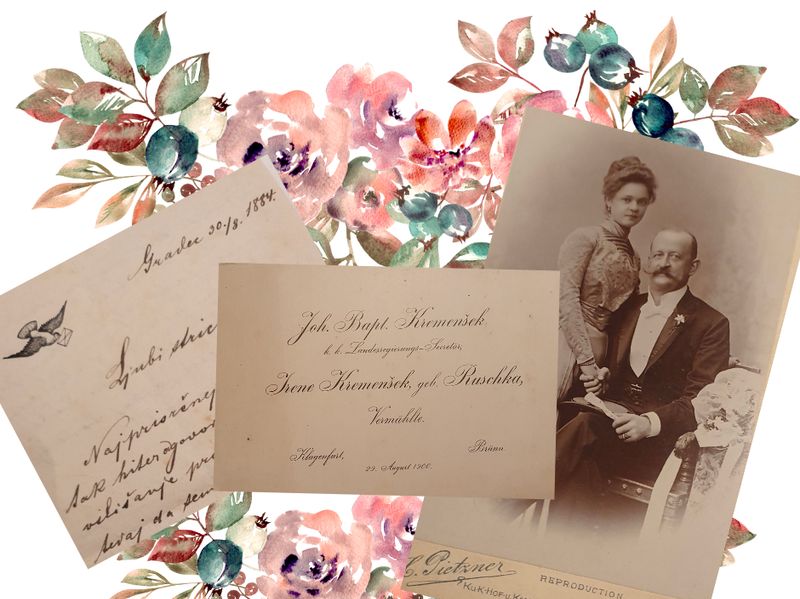 Gradec 30./8. 1884.
Ljubi stric
Najprisrčnej
tak hiter
vilišanje
tedaj da sem
Joh. Bapt. Kremenšek
k. k. Landesregierungs-Secretär,
Irene Kremenšek, geb. Ruschka,
Vermählte.
Klagenfurt, Brünn
29. August 1900.
C. Pietzner
K.u.K. HOF-u.
REPRODUCTION